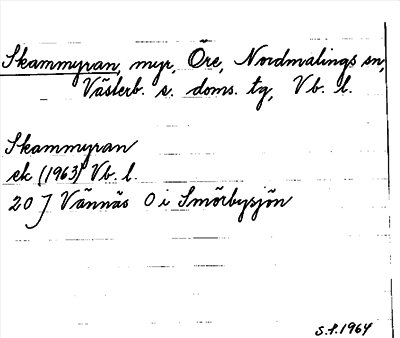 Skammyran, myr, Öre, Nordmalings sn,
Västerb. s. doms. tg, Vb. l.
Skammyran
ek (1963) Vb. l.
20 J Vännäs O i Smörbysjön
S.f. 1964